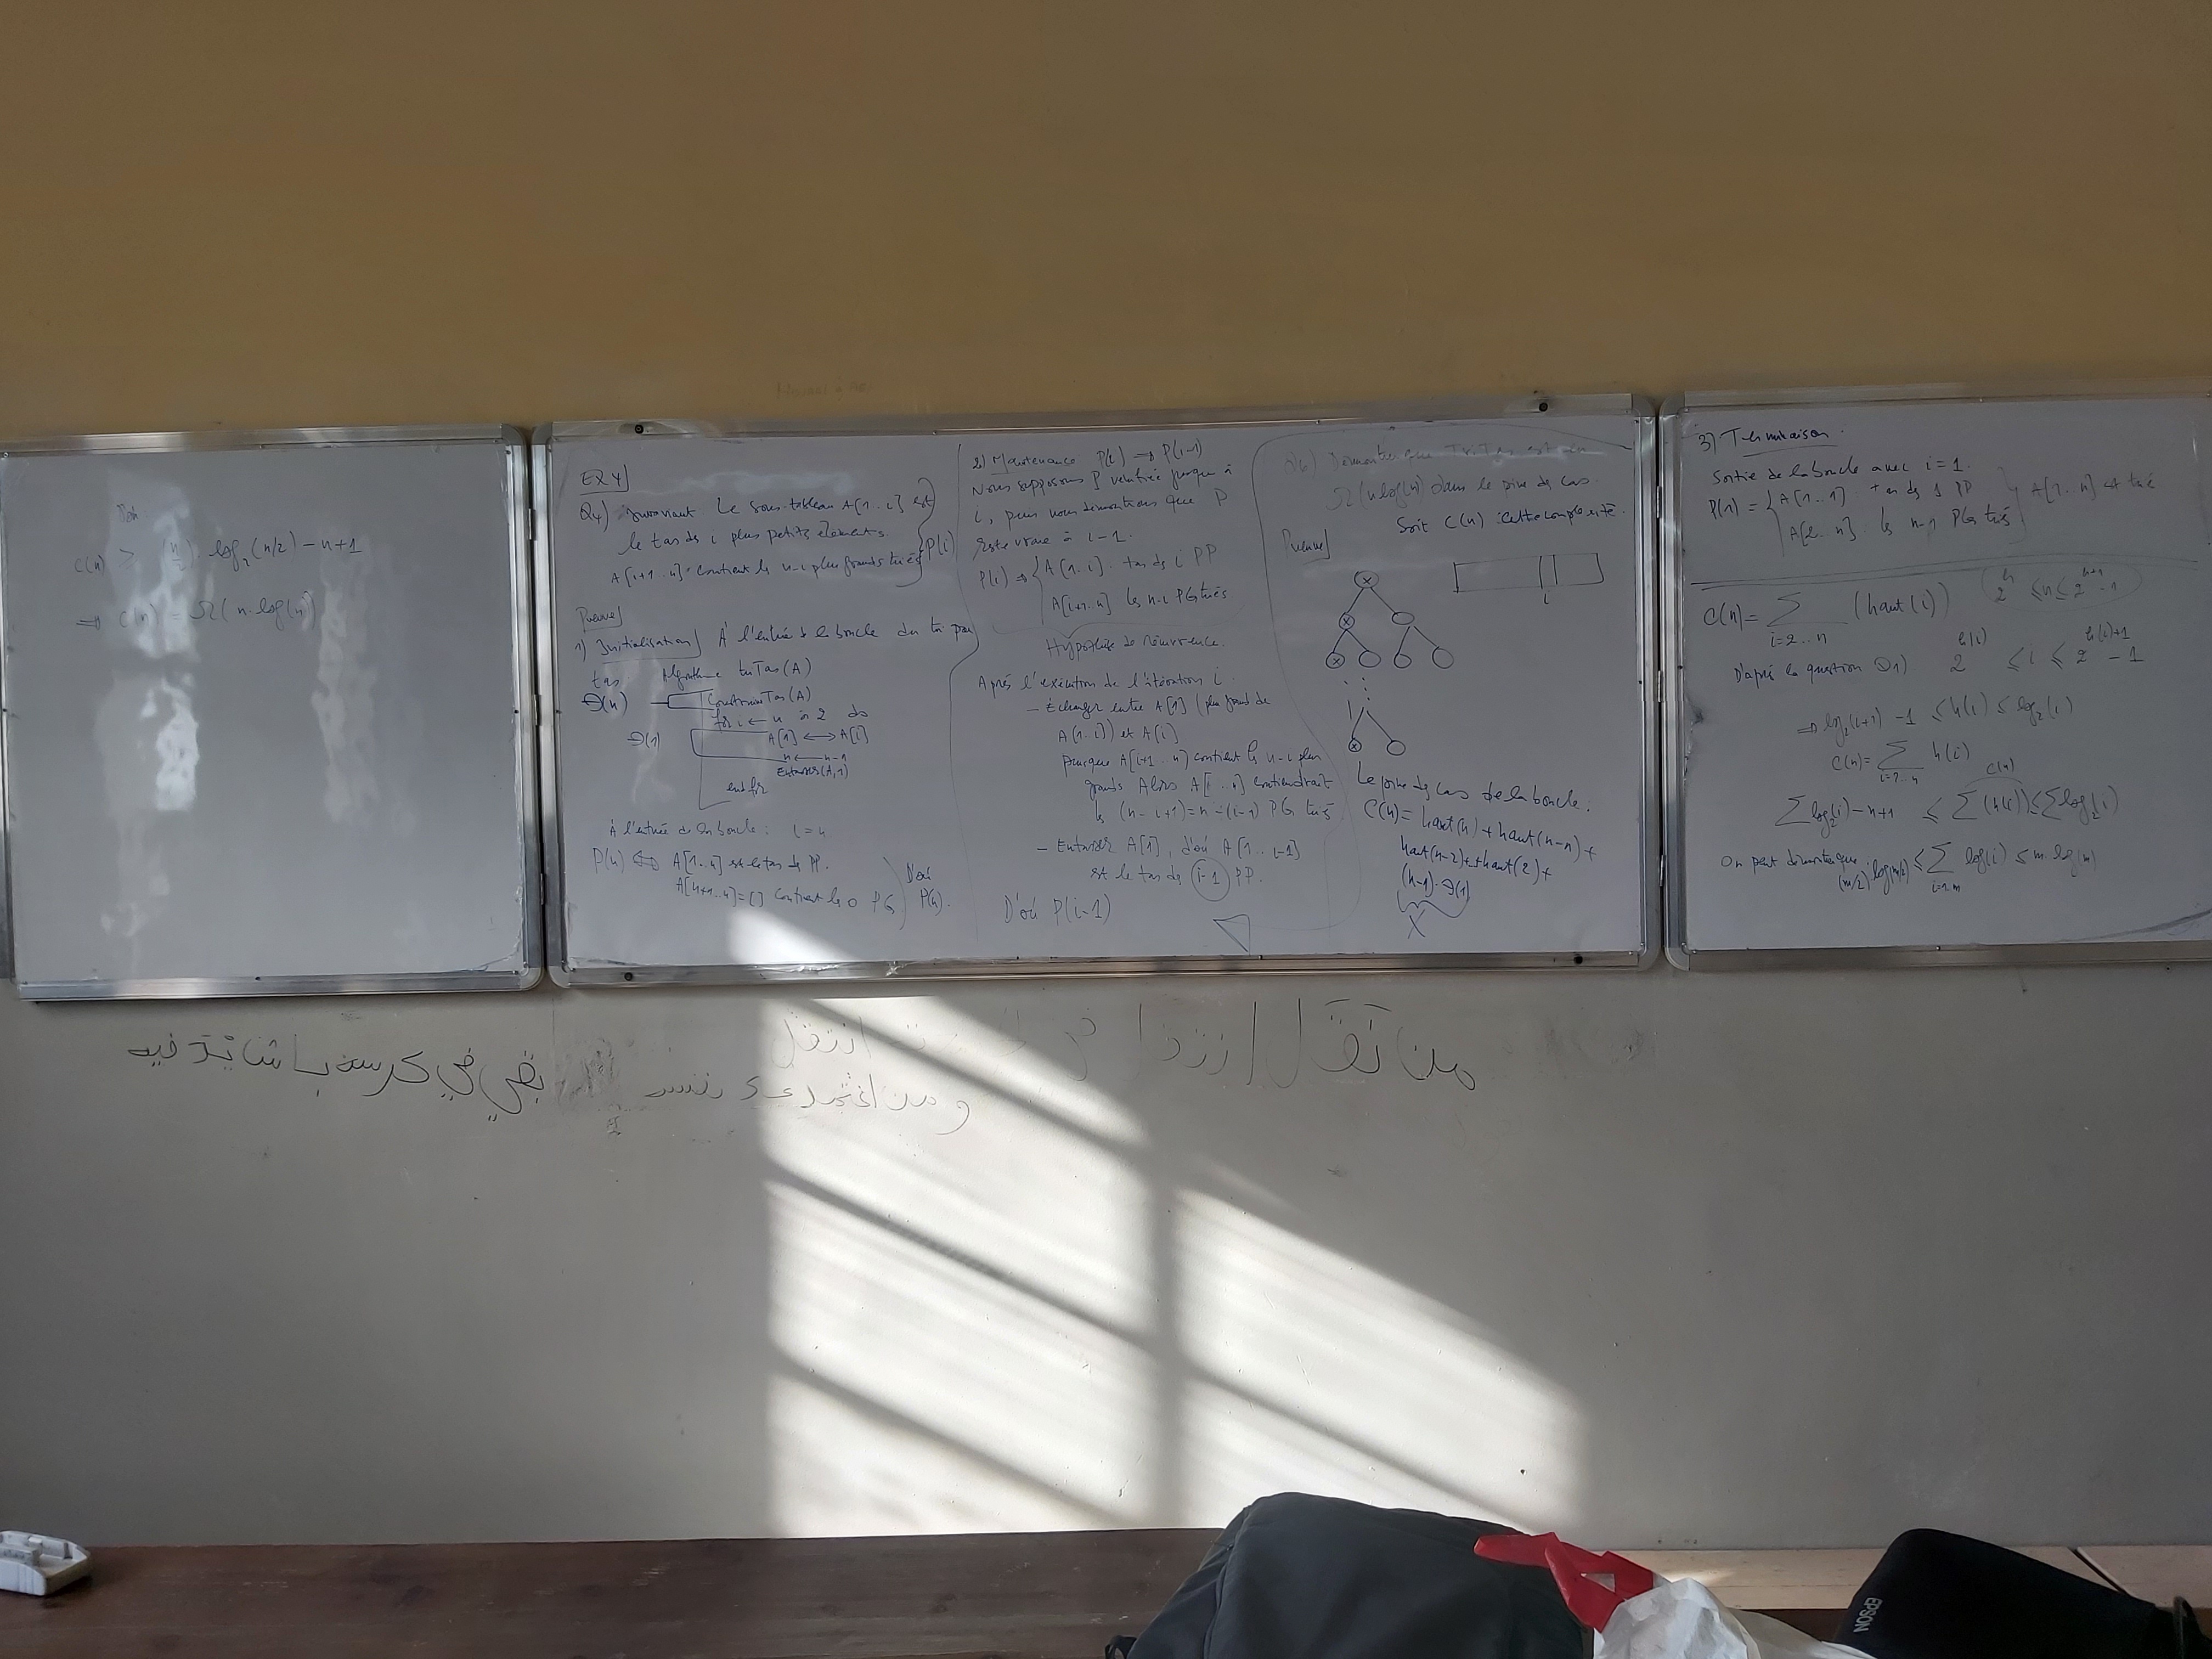 EX4
Q4) Invariant Le sous-tableau A[1..i] est
le tas des i plus petits éléments.
A[i+1..n] contient les n-i plus grands triés
P(i)
Preuve
1) Initialisation À l'entrée de la boucle du tri par
tas
Algorithme triTas(A)
Θ(n) ConstruireTas(A)
for i ← n à 2 do
Θ(1) A[1] ↔ A[i]
n ← n-1
Entasser(A,1)
end for
À l'entrée de la boucle : i=n
P(n) ⇔ A[1..n] est le tas de PP.
A[n+1..n]=[] contient les 0 PG
D'où P(n).
2) Maintenance P(i) ⇒ P(i-1)
Nous supposons P vérifiée jusque à
i, puis nous démontrons que P
reste vraie à i-1.
P(i) ⇒ { A[1..i] tas de i PP
A[i+1..n] les n-i PG triés
Hypothèse de récurrence.
Après l'exécution de l'itération i.
- Échanger entre A[1] (plus grand de
A[1..i]) et A[i]
puisque A[i+1..n] contient les n-i plus
grands Alors A[i..n] contiendrait
les (n-i+1)=n-(i-1) PG triés
- Entasser A[1], d'où A[1..i-1]
est le tas de (i-1) PP.
D'où P(i-1)
Q6) Démontrer que TriTas est en
Ω(n log(n)) dans le pire des cas.
Soit C(n) cette complexité.
Preuve
i
Le pire des cas de la boucle.
C(n) = haut(n) + haut(n-1) +
haut(n-2)+..+haut(2)+
(n-1)·Θ(1)
X
3) Terminaison
Sortie de la boucle avec i=1.
P(1) = { A[1..1] tas de 1 PP
A[2..n] les n-1 PG triés
A[1..n] est trié
C(n) = ∑ i=2..n (haut(i)) 2^h ≤ n ≤ 2^{h+1} - 1
D'après la question Q1) 2^{h(i)} ≤ i ≤ 2^{h(i)+1} - 1
⇒ log₂(i+1) - 1 ≤ h(i) ≤ log₂(i)
C(n) = ∑ i=2..n h(i)
C(n)
∑ log₂(i) - n+1 ≤ ∑(h(i)) ≤ ∑ log₂(i)
On peut démontrer que (m/2) log(m/2) ≤ ∑ i=1..m log(i) ≤ m log(m)
C(n) > (n/2) · log₂(n/2) - n+1
⇒ C(n) = Ω(n·log(n))
من نقل انتقل
و من اعتمد على نفسه بقي في
EPSON